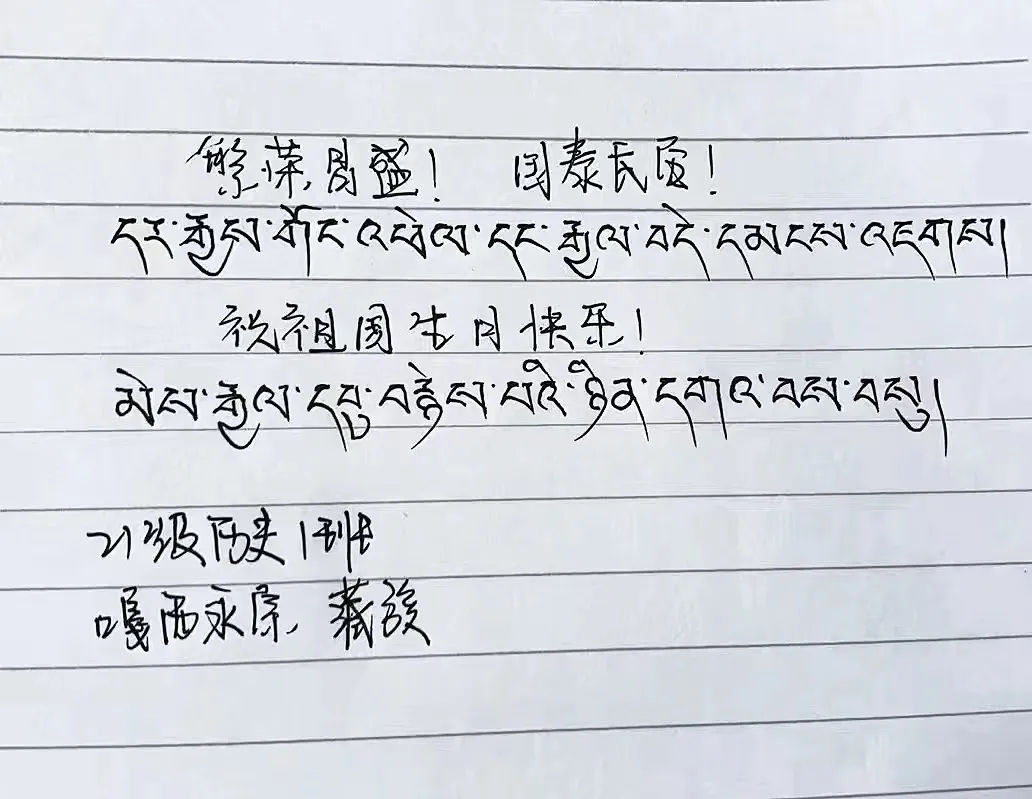 繁荣昌盛! 国泰民安!
དར་རྒྱས་གོང་འཕེལ་དང་རྒྱལ་བདེ་དམངས་འཇགས།
祝祖国生日快乐!
མེས་རྒྱལ་དབུ་བརྙེས་པའི་ཉིན་དགའ་བས་བསུ།
21级历史1班
嘎西永宗 藏族